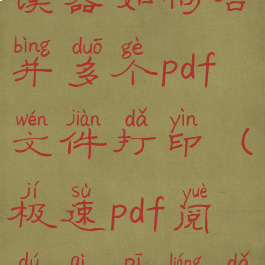 读器如何合
bìng duō gè
并多个pdf
wén jiàn dǎ yìn
文件打印（
jí sù yuè
极速pdf阅
dú qì rú